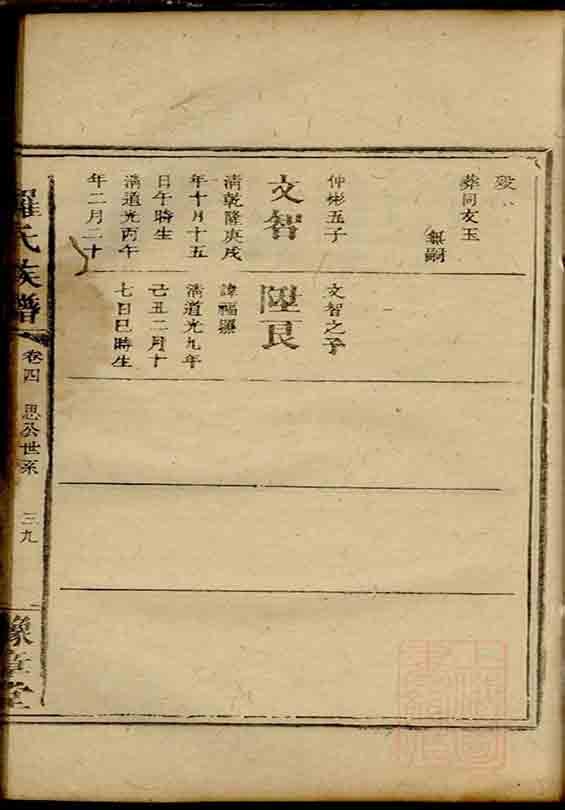 歿
葬同女玉
無嗣
仲彬五子
文智
清乾隆庚戌
年十月十五
日午時生
清道光丙午
年二月二十
文智之子
陞良
諱福
清道光九年
己丑二月十
七日巳時生
羅氏族譜
卷四
思公世系
三九
豫章堂